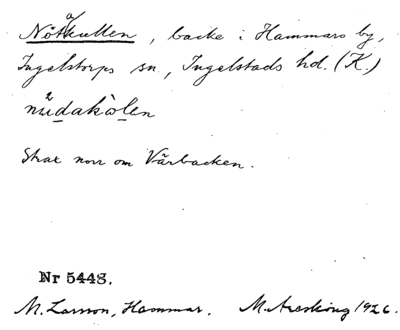 Nötakullen, backe i Hammars by,
Ingelstorps sn., Ingelstads hd. (K.)
nüdakòlen
Strax norr om Vårbacken.
Nr 5448.
M. Larsson, Hammar. M. Areskoug 1926.